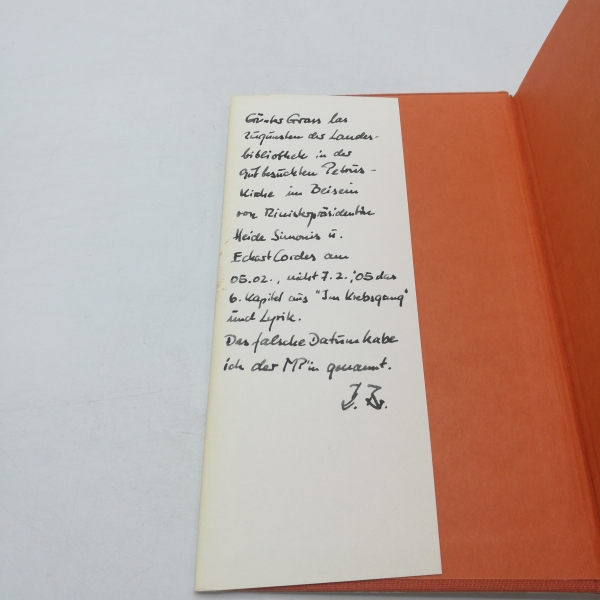 Günter Grass las
zugunsten der Landes-
bibliothek in der
gut besuchten Petrus-
Kirche im Beisein
von Ministerpräsidentin
Heide Simonis u.
Eckart Cordes am
05.02., nicht 7.2.'05 das
6. Kapitel aus "Im Krebsgang"
und Lyrik.
Das falsche Datum habe
ich der MP'in genannt.